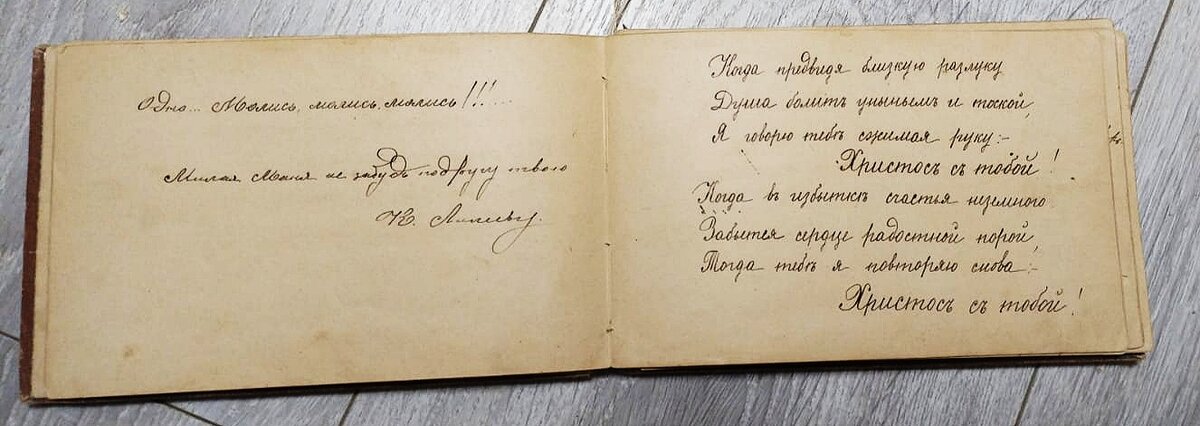 Одно... Молись, молись, молись!!!...
Милая Маня не забудь подругу твою
К.
Когда предвидя близкую разлуку
Душа болитъ уныньемъ и тоской,
Я говорю тебѣ сжимая руку:-
Христосъ съ тобой!
Когда въ избыткѣ счастья неземного
Забьется сердце радостной порой,
Тогда тебѣ я повторяю снова:-
Христосъ съ тобой!